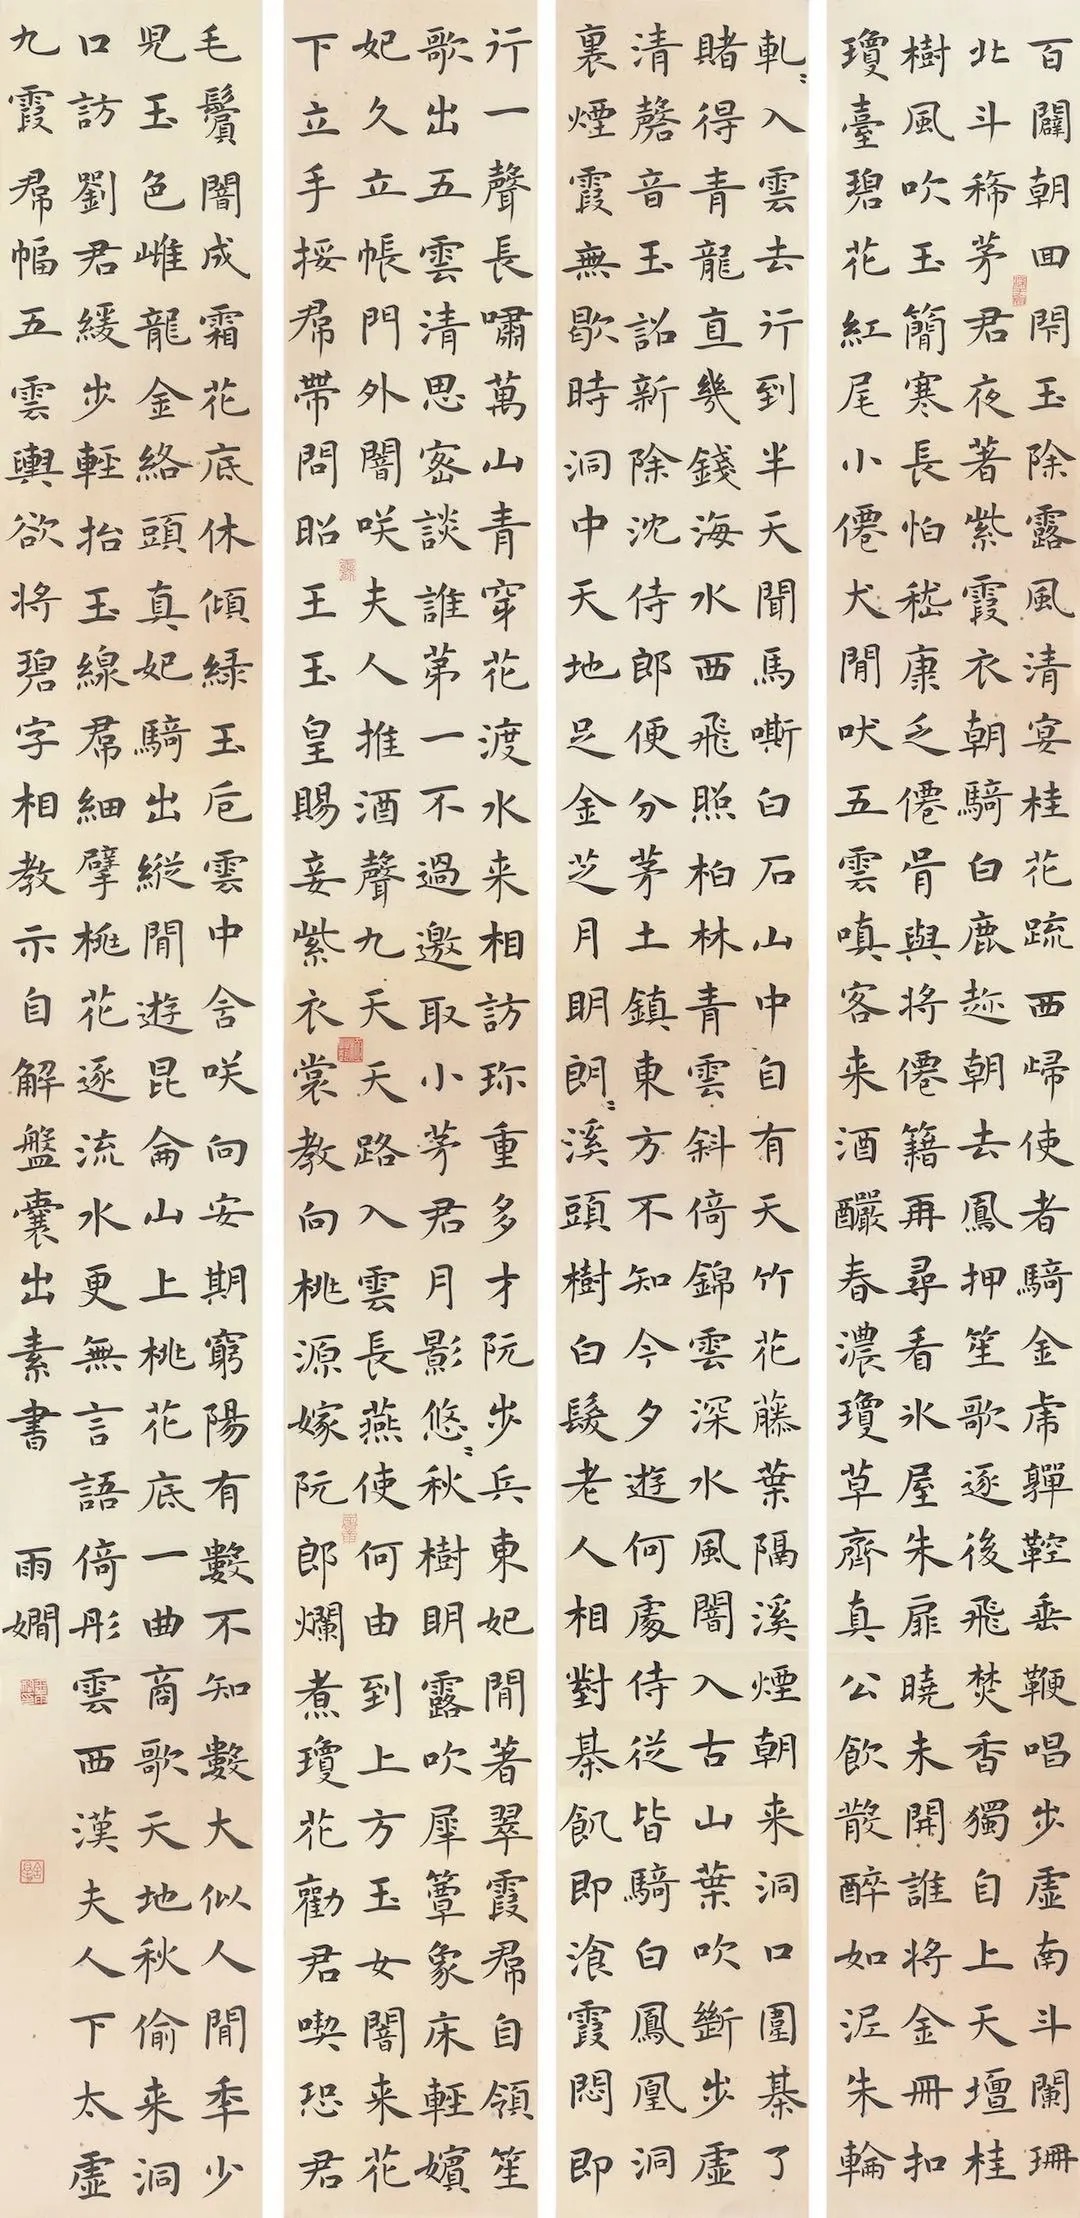 百闢朝回閉玉除露風清宴桂花疏西歸使者騎金虎嚲鞚垂鞭唱步虛南斗闌珊
北斗稀茅君夜著紫霞衣朝騎白鹿趂朝去鳳押笙歌逐後飛焚香獨自上天壇桂
樹風吹玉簡寒長怕嵇康乏僊骨與將僊籍再尋看氷屋朱扉曉未開誰將金冊扣
瓊臺碧花紅尾小僊犬閒吠五雲嗔客来酒釅春濃瓊草齊真公飲散醉如泥朱輪
軋〻入雲去行到半天聞馬嘶白石山中自有天竹花藤葉隔溪煙朝来洞口圍棊了
賭得青龍直幾錢海水西飛照柏林青雲斜倚錦雲深水風闇入古山葉吹斷步虛
清磬音玉詔新除沈侍郎便分茅土鎮東方不知今夕遊何處侍從皆騎白鳳凰洞
裏煙霞無歇時洞中天地足金芝月明朗〻溪頭樹白髮老人相對棊飢即飡霞悶即
行一聲長嘯萬山青穿花渡水来相訪珎重多才阮步兵東妃閒著翠霞帬自領笙
歌出五雲清思密談誰第一不過邀取小茅君月影悠〻秋樹明露吹犀簟象床輕嬪
妃久立帳門外闇咲夫人推酒聲九天天路入雲長燕使何由到上方玉女闇来花
下立手挼帬帶問昭王玉皇賜妾紫衣裳教向桃源嫁阮郎爛煮瓊花勸君喫恐君
毛鬢闇成霜花底休傾緑玉卮雲中含咲向安期窮陽有數不知數大似人閒秊少
兒玉色雌龍金絡頭真妃騎出縱閒遊昆侖山上桃花底一曲商歌天地秋偷来洞
口訪劉君緩步輕抬玉線帬細擘桃花逐流水更無言語倚彤雲西漢夫人下太虛
九霞帬幅五雲輿欲將碧字相教示自解盤囊出素書 雨嫺